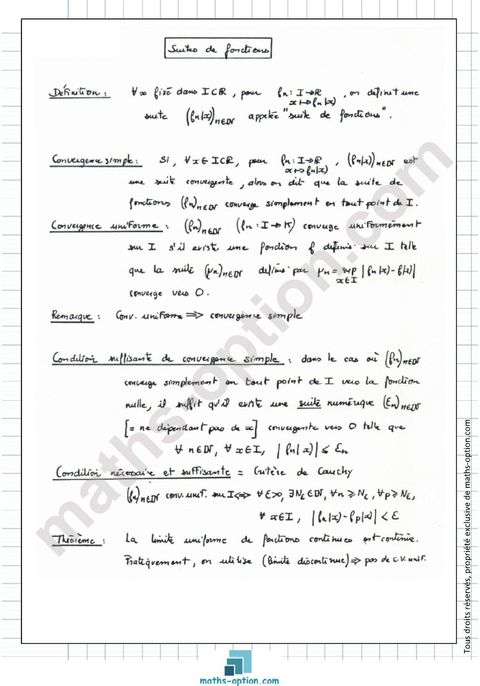 Suites de fonctions
Définition : ∀x fixé dans I⊂ℝ, pour fn : I→ℝ, on définit une
x↦fn(x)
suite (fn(x))n∈ℕ appelée "suite de fonctions".
Convergence simple : Si, ∀x∈I⊂ℝ, pour fn : I→ℝ, (fn(x))n∈ℕ est
x↦fn(x)
une suite convergente, alors on dit que la suite de
fonctions (fn)n∈ℕ converge simplement en tout point de I.
Convergence uniforme : (fn)n∈ℕ (fn : I→K) converge uniformément
sur I s'il existe une fonction f définie sur I telle
que la suite (μn)n∈ℕ définie par μn = sup |fn(x)-f(x)|
x∈I
converge vers 0.
Remarque : Conv. uniforme ⟹ convergence simple
Condition suffisante de convergence simple : dans le cas où (fn)n∈ℕ
converge simplement en tout point de I vers la fonction
nulle, il suffit qu'il existe une suite numérique (εn)n∈ℕ
[= ne dépendant pas de x] convergente vers 0 telle que
∀n∈ℕ, ∀x∈I, |fn(x)| ≤ εn
Condition nécessaire et suffisante = Critère de Cauchy
(fn)n∈ℕ conv. unif. sur I ⟺ ∀ε>0, ∃Nε∈ℕ, ∀n≥Nε, ∀p≥Nε,
∀x∈I, |fn(x)-fp(x)| < ε
Théorème : La limite uniforme de fonctions continues est continue.
Pratiquement, on utilise (limite discontinue) ⟹ pas de C.V. unif.
maths-option.com
Tous droits réservés, propriété exclusive de maths-option.com
maths-option.com